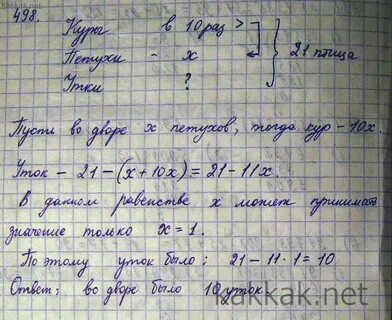 kakkak.net
498.
Куры в 10 раз >
Петухи - x 21 птица
Утки ?
Пусть во дворе x петухов, тогда кур - 10x.
Уток - 21 - (x + 10x) = 21 - 11x.
В данном равенстве x может принимать
значение только x = 1.
По этому уток было: 21 - 11 · 1 = 10
Ответ: во дворе было 10 уток.
kakkak.net